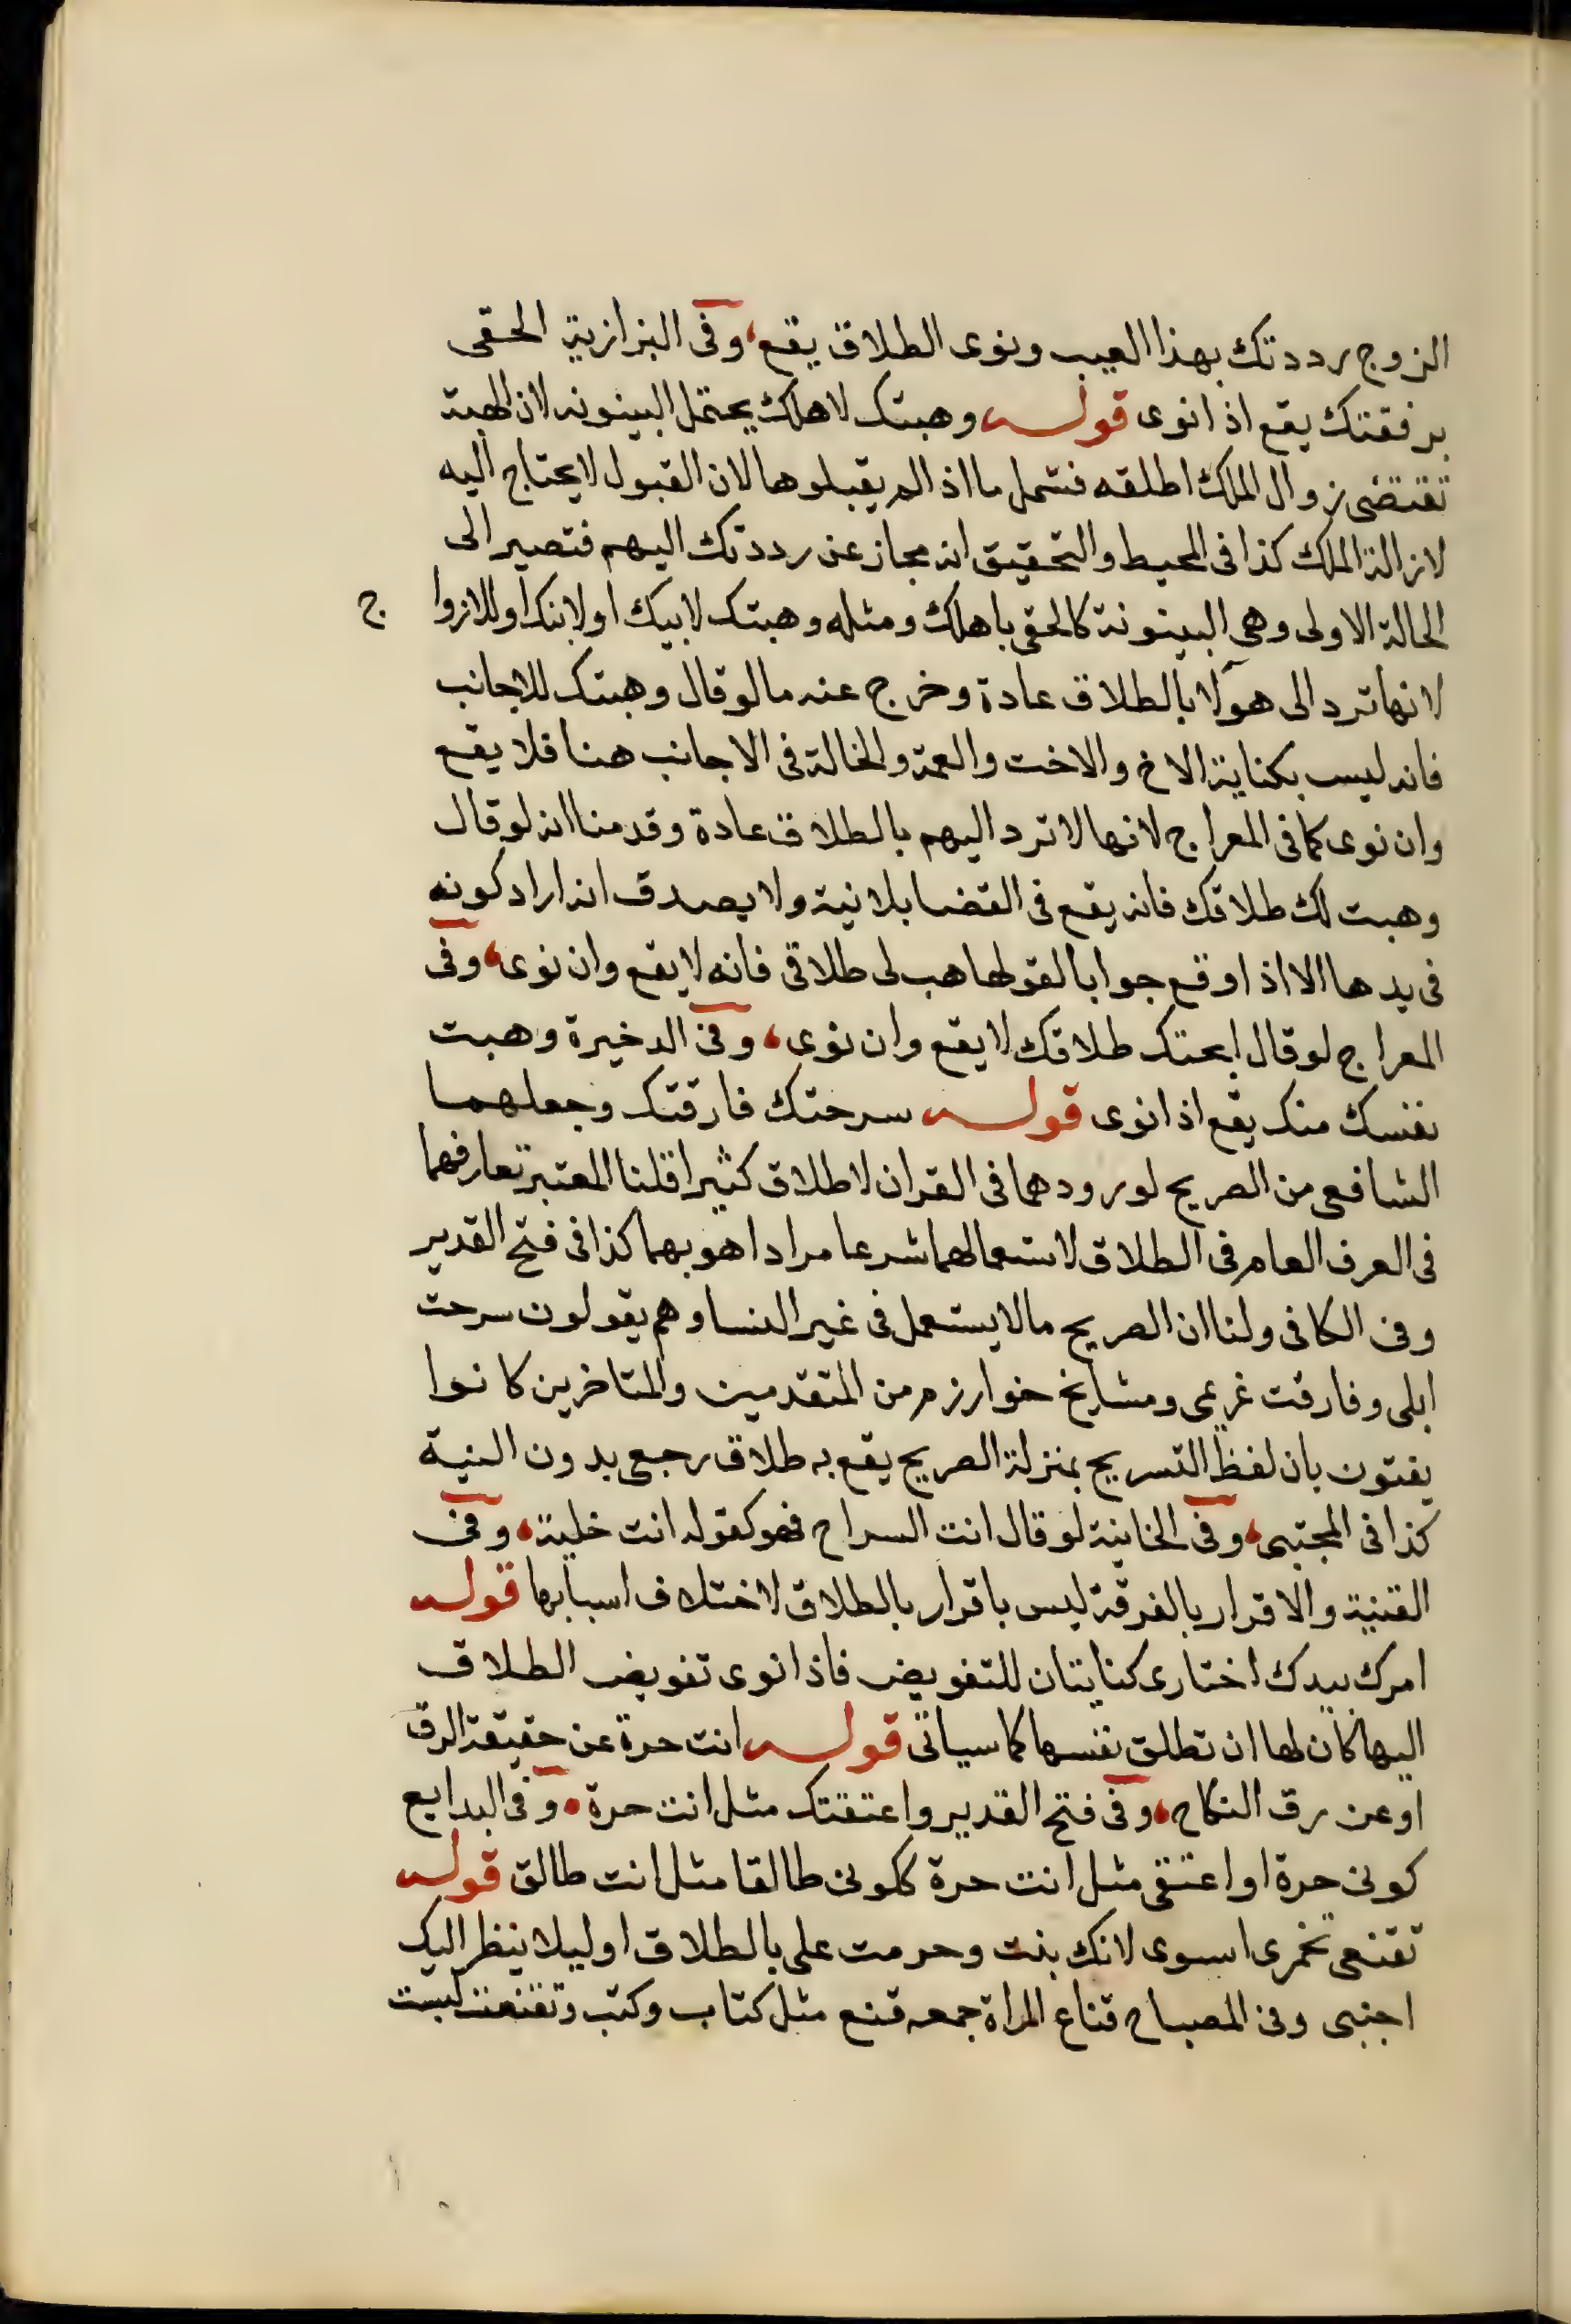 الزوج رددتك بهذا العيب ونوى الطلاق يقع، وفى البزازية الحقى
برفقتك يقع اذا نوى قوله وهبتك لاهلك يحتمل البينونه لان الهبة
تقتضى زوال الملك اطلقه فشمل ما اذا لم يقبلوها لان القبول لايحتاج اليه
لازالة الملك كذا فى المحيط والتحقيق انه مجاز عن رددتك اليهم فتصير الى
الحالة الاولى وهى البينونة كالحقى باهلك ومثله وهبتك لابيك او لابنك او للازوا ج
لانها ترد الى هولا بالطلاق عادة وخرج عنه ما لو قال وهبتك للاجانب
فانه ليس بكناية الاخ والاخت والعمة والخالة فى الاجانب هنا فلا يقع
وان نوى كما فى المعراج لانها لا ترد اليهم بالطلاق عادة وقدمنا انه لو قال
وهبت لك طلاقك فانه يقع فى القضا بلا نية ولا يصدق انه اراد كونه
فى يدها الا اذا وقع جوابا لقولها هب لى طلاقى فانه لا يقع وان نوى، وفى
المعراج لو قال ابحتك طلاقك لا يقع وان نوى، وفى الدخيرة وهبت
نفسك منك يقع اذا نوى قوله سرحتك فارقتك وجعلهما
الشافعى من الصريح لورودهما فى القران لاطلاق كثيرا قلنا المعتبر تعارفهما
فى العرف العام فى الطلاق لاستعمالهما شرعا مرادا هو بهما كذا فى فتح القدير
وفى الكافى ولنا ان الصريح مالا يستعمل فى غير النسا وهم يقولون سرحت
ابلى وفارقت غريمى ومشايخ خوارزم من المتقدمين والمتاخرين كانوا
يفتون بان لفظ التسريح بمنزلة الصريح يقع به طلاق رجعى بدون النية
كذا فى المجتبى، وفى الخانية لو قال انت السراح فهو كقوله انت خلية، وفى
القنية والاقرار بالفرقة ليس باقرار بالطلاق لاختلاف اسبابها قوله
امرك بيدك اختارى كنايتان للتفويض فاذا نوى تفويض الطلاق
اليها كان لها ان تطلق نفسها كما سياتى قوله انت حرة عن حقيقة الرق
او عن رق النكاح، وفى فتح القدير واعتقتك مثل انت حرة، وفى البدايع
كونى حرة او اعتقى مثل انت حرة ككونى طالقا مثل انت طالق قوله
تقنعى تخمرى اسوى لانك بنت وحرمت على بالطلاق او ليلا ينظر اليك
اجنبى وفى المصباح قناع المراة جمعه قنع مثل كتاب وكتب وتقنعت لبست